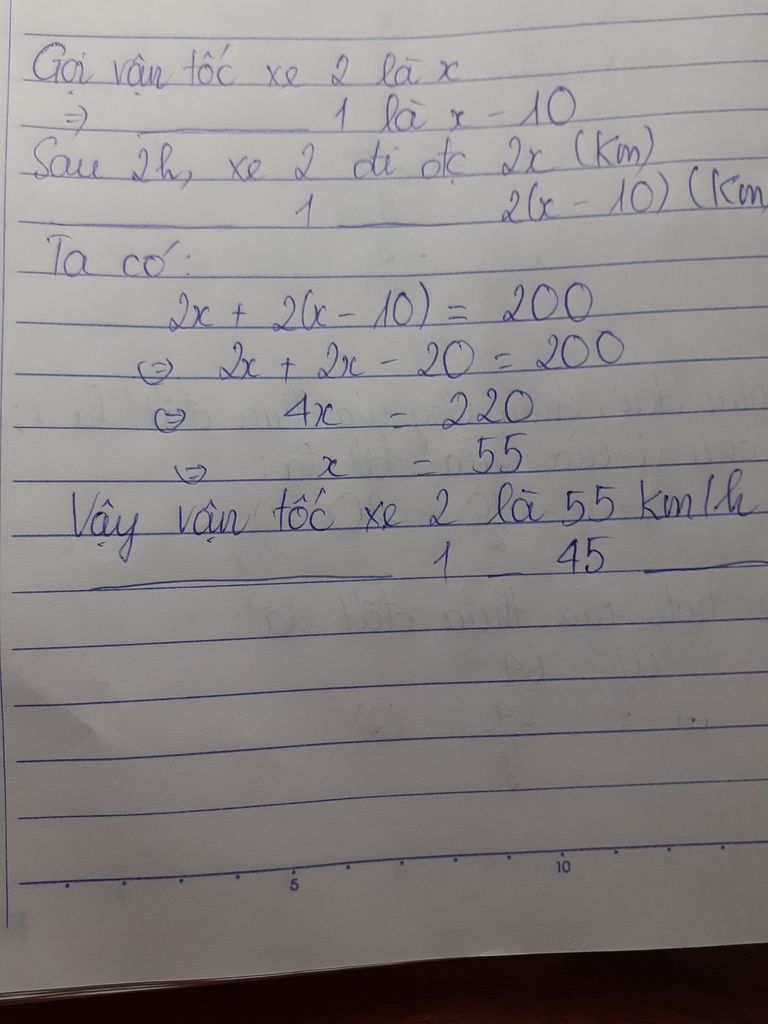 Gọi vận tốc xe 2 là x
=> ______ 1 là x - 10
Sau 2h, xe 2 đi đc 2x (Km)
______ 1 ______ 2(x - 10) (Km
Ta có:
2x + 2(x - 10) = 200
<=> 2x + 2x - 20 = 200
<=> 4x = 220
<=> x = 55
Vậy vận tốc xe 2 là 55 km/h
______ 1 __ 45 ______
5 10